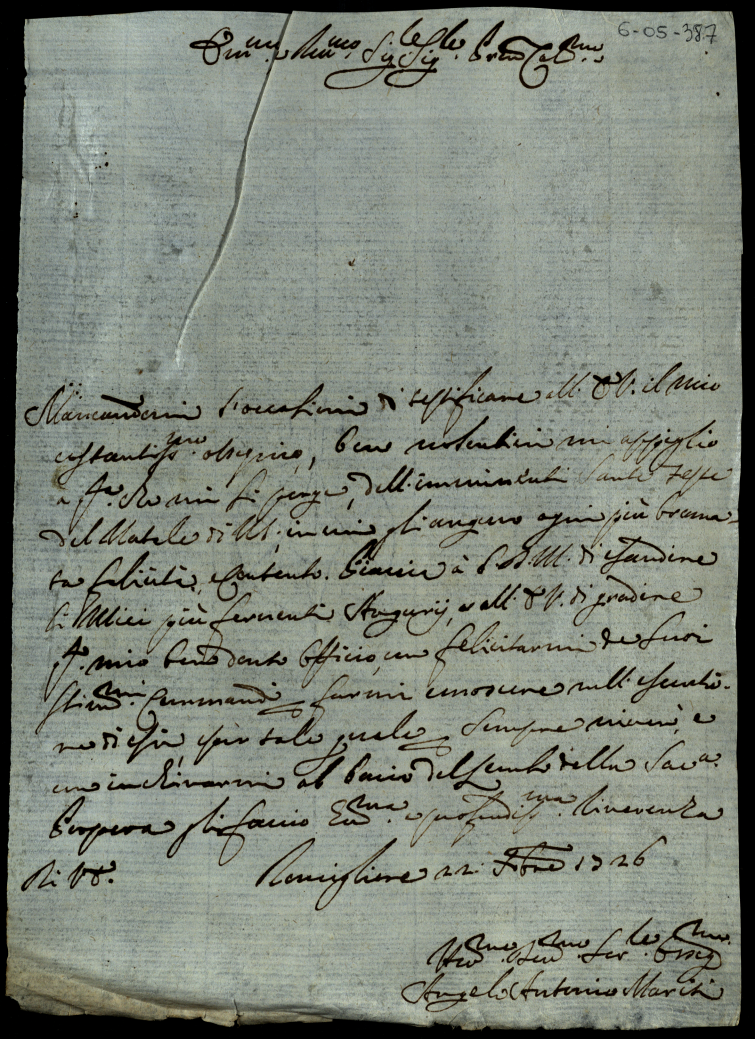 6-05-387
Em.mo e Rev.mo Sig.le Sig.le Pron Col.mo
Mancandomi l'occasioni di testificare all' E.V. il mio
costantiss.mo ossequio, ben volentieri mi appiglio
a q.ta che mi si porge, dell'imminenti Sante Feste
del Natale di N.S. in cui gli auguro ogni più brama-
ta felicità, e contento. Piaccia à S.D.M. di esaudire
li Miei più ferventi Augurij, e all' E.V. di gradire
q.to mio ben douto Officio, con felicitarmi de suoi
stim.mi Commandi farmi conoscere nell' esecutio-
ne di essi, esser tale quale sempre vivrò, e
con inchinarmi al bacio del lembo della Sac.a
Porpora gli faccio Um.ma e profondiss.ma Riverenza
Di V.E. Ronciglione 22 Xbre 1726
Um.mo Dev.mo Ser.le Osseq.mo
Angelo Antonio Mariti